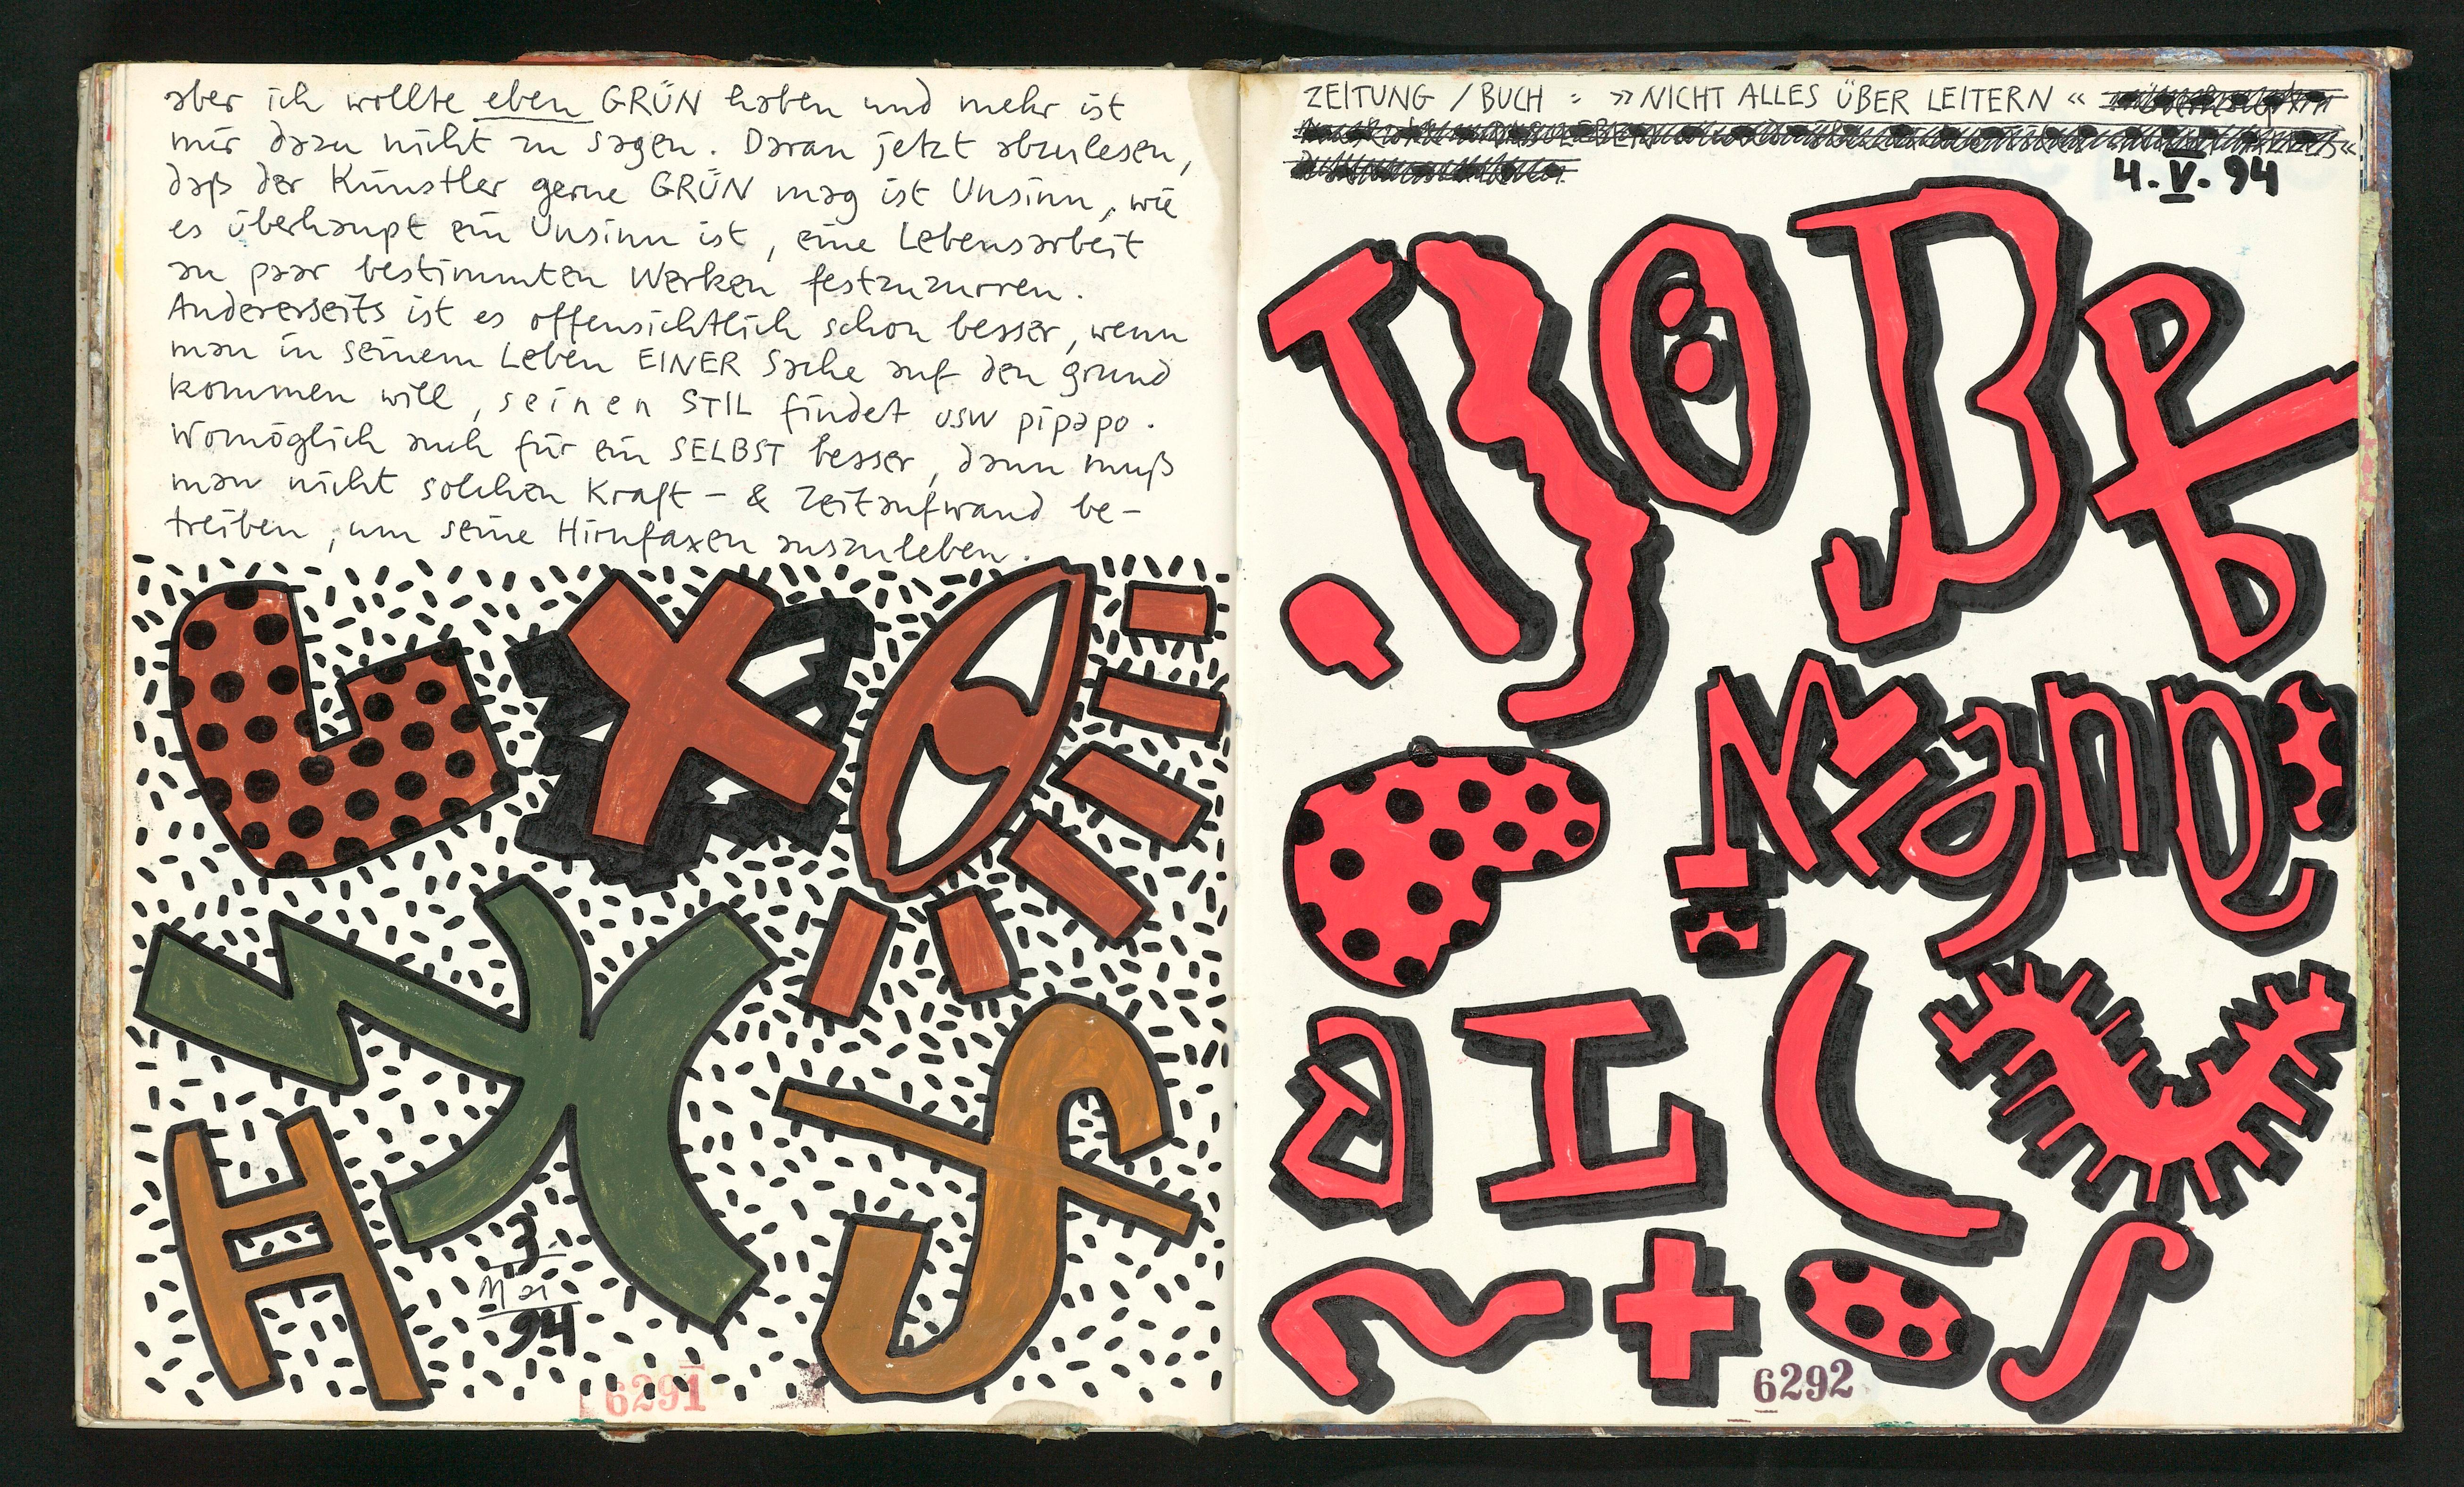 aber ich wollte eben GRÜN haben und mehr ist
mir dazu nicht zu sagen. Daran jetzt abzulesen,
daß der Künstler gerne GRÜN mag ist Unsinn, wie
es überhaupt ein Unsinn ist, eine Lebensarbeit
an paar bestimmten Werken festzuzurren.
Andererseits ist es offensichtlich schon besser, wenn
man in seinem Leben EINER Sache auf den grund
kommen will, seinen STIL findet usw pipapo.
Womöglich auch für ein SELBST besser, dann muß
man nicht solchen Kraft- & Zeitaufwand be-
treiben, um seine Hirnfaxen auszuleben.
3.
Mai
94
6291
ZEITUNG / BUCH : »NICHT ALLES ÜBER LEITERN«
4.V.94
6292